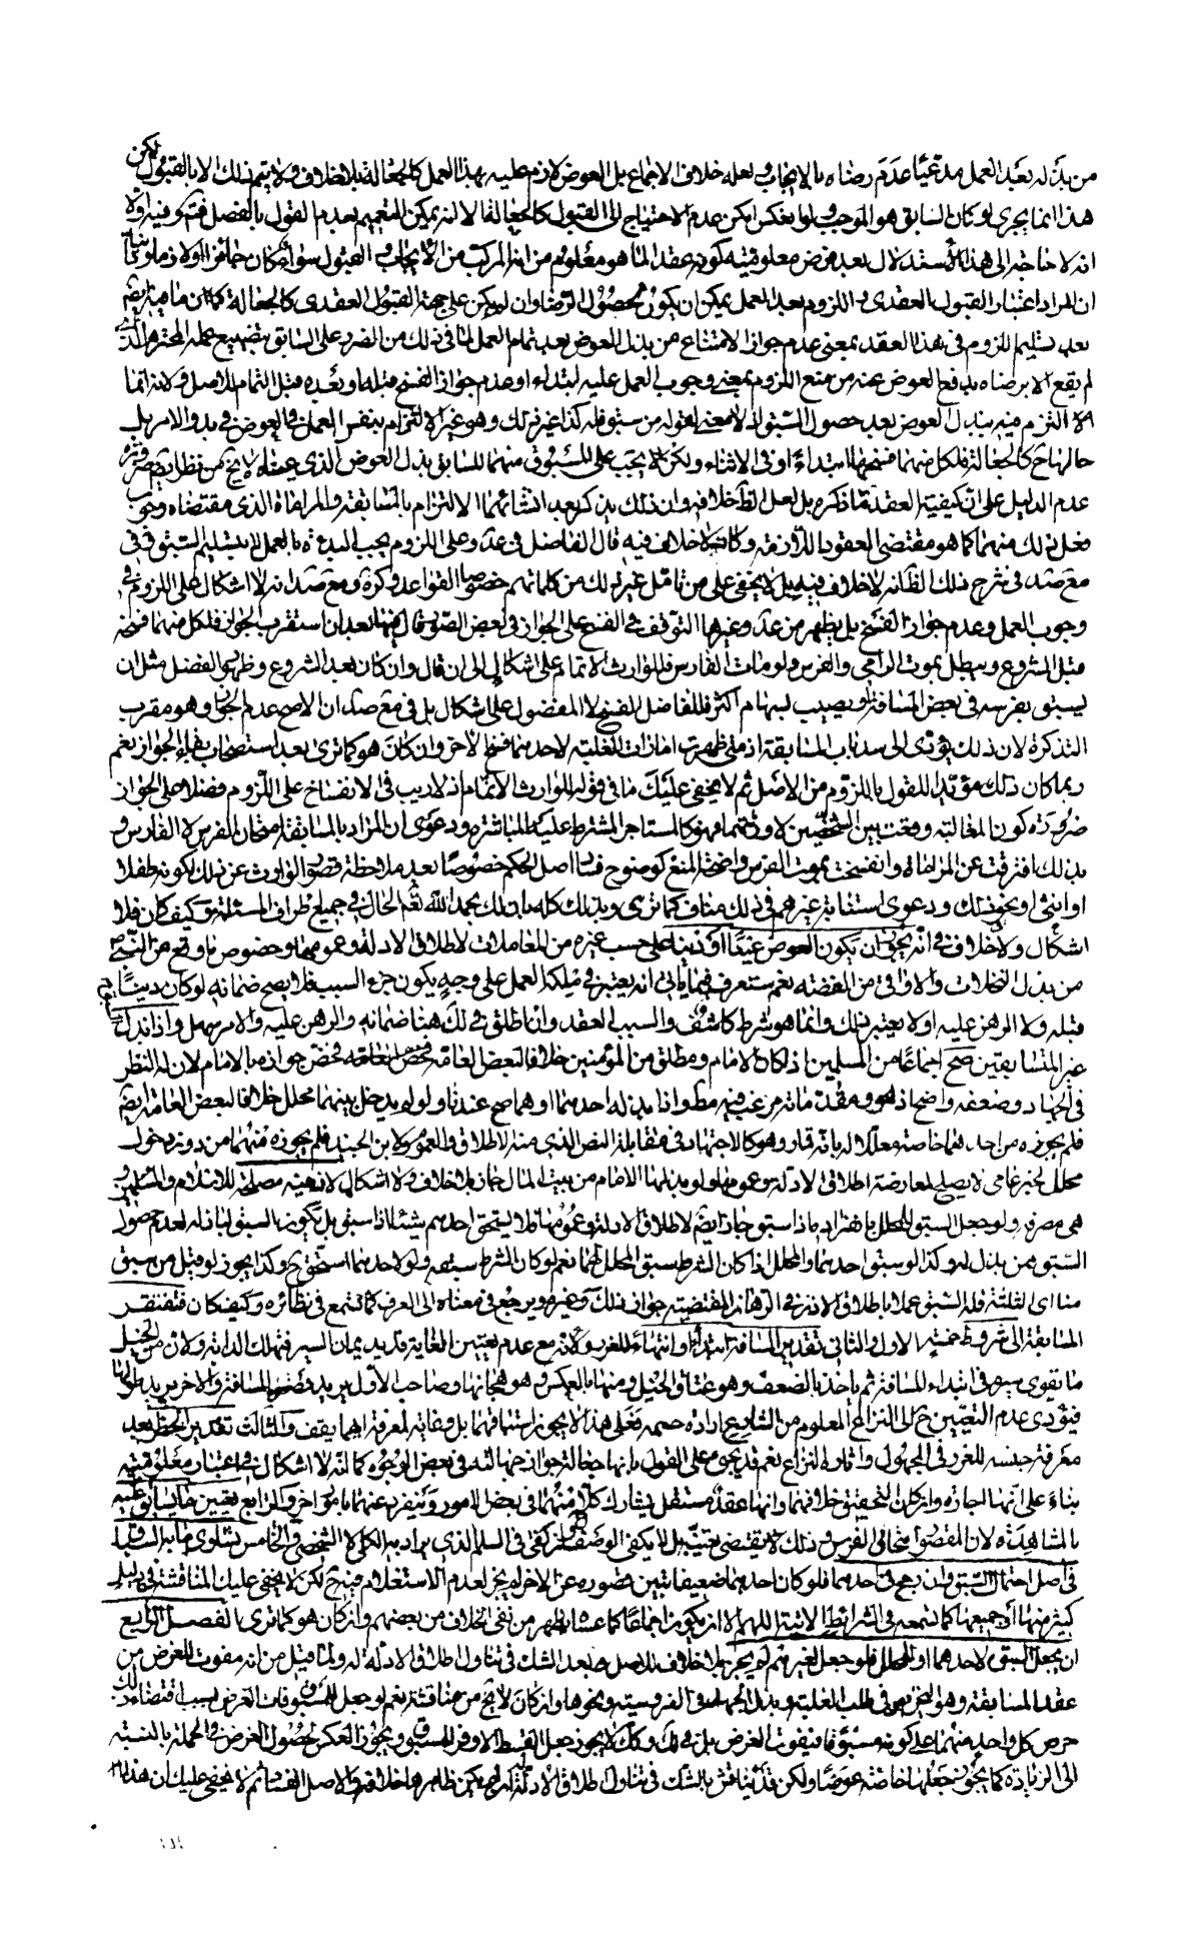 من بذله بعد العمل مدعيا عدم رضاه بالإيجاب ولعله خلاف الإجماع بل العوض لازم عليه بهذا العمل كالجعالة بلا خلاف ولا يتم ذلك إلا بالقبول لكن
هذا انما يجرى لو كان السابق هو الموجب ولو انعكس امكن عدم الاحتياج الى القبول كالجعالة الا انه يمكن التعميم بعدم القول بالفصل فتم وفيه اولا
انه لا حاجة الى هذا الاستدلال بعد فرض معلومية كونه عقدا لما هو معلوم من انه المركب من الايجاب و القبول سواء كان جائزا او لازما وثانيا
ان المراد اعتبار القبول العقدى و اللزوم بعد العمل يمكن ان يكون لحصول الرضا وان لم يكن على جهة القبول العقدى كالجعالة
بعد تسليم اللزوم فى هذا العقد بمعنى عدم جواز الامتناع من بذل العوض بعد تمام العمل لما فى ذلك من الضرر على السابق بتضييع عمله المحترم الذى
لم يقع الا برضاه بدفع العوض عنه من منع اللزوم بمعنى وجوب العمل عليه ابتداء او عدم جواز الفسخ قبله او بعده قبل التمام للاصل ولانه انما
التزم فيه ببذل العوض بعد حصول السبق اذ لا معنى لقوله من سبق فله كذا غير ذلك وهو غير الالتزام بنفس العمل والعوض فى بدو الامر بل
حالها ح كالجعالة فلكل منهما فسخها ابتداء او فى الاثناء ولكن يجب على المسبوق منهما للسابق بذل العوض الذى عيناه لا يخ من نظر ايضا ضرورة
عدم الدليل على ان كيفية العقد ما ذكره بل لعل الظ خلافه وان ذلك يذكر بعد انشائهما الالتزام بالمسابقة والمراماة الذى مقتضاه وجوب
فعل ذلك منهما كما هو مقتضى العقود اللازمة وكانه لا خلاف فيه قال الفاضل فى عد وعلى اللزوم يجب البدءة بالعمل لا بتسليم السبق وفى
مع صد فى شرح ذلك الظ انه لا خلاف فيه بل لا يخفى على من تامل غير ذلك من كلماتهم خصوصا القواعد وكره ومع صد انه لا اشكال على اللزوم فى
وجوب العمل وعدم جواز الفسخ بل يظهر من عد وغيرها التوقف فى الفسخ على الجواز فى بعض الصور قال فيها بعد ان استقرب الجواز فلكل منهما فسخه
قبل الشروع ويبطل بموت الرامى والفرس ولو مات الفارس فللوارث الاتمام على اشكال الى ان قال وان كان بعد الشروع وظهور الفضل مثل ان
يسبق بفرسه فى بعض المسافة او يصيب بسهام اكثر فللفاضل الفسخ لا المفضول على اشكال بل فى مع صد ان الاصح عدم الجواز وهو مقرب
التذكرة لان ذلك يؤدى الى سد باب المسابقة اذ متى ظهرت امارات الغلبة لاحدهما فسخ الاخر وان كان هو كما ترى بعد استصحاب بقاء الجواز نعم
ربما كان ذلك مؤيدا للقول باللزوم من الاصل ثم لا يخفى عليك ما فى قوله للوارث الاتمام اذ لا ريب فى الانفساخ على اللزوم فضلا على الجواز
ضرورة كون المغالبة وقعت بين الشخصين لا ورثتهما فهو كالمستاجر المشترط عليه المباشرة ودعوى ان المراد بالمسابقة امتحان الفرس لا الفارس و
بذلك افترقت عن المراماة و انفسخت بموت الفرس واضحة المنع كوضوح فساد اصل الحكم خصوصا بعد ملاحظة قصور الوارث عن ذلك لكونه طفلا
او انثى او نحو ذلك ودعوى استنابة غيرهم فى ذلك مناف كما ترى وبذلك كله بان لك بحمد الله تعم الحال فى جميع اطراف المسئلة وكيف كان فلا
اشكال ولا خلاف فى انه يجوز ان يكون العوض عينا او دينا على حسب غيره من المعاملات لاطلاق الادلة وعمومها وخصوص ما وقع من النبى ص
من بذل النخلات والاواقى من الفضة نعم ستعرف فيما ياتى انه يعتبر فى ملكه العمل على وجه يكون جزء السبب فلا يصح ضمانه لو كان دينا
قبله ولا الرهن عليه او لا يعتبر ذلك وانما هو شرط كاشف والسبب العقد وان اطلق فى لك هنا ضمانه والرهن عليه والامر سهل و اذا بذل
غير المتسابقين صح اجماعا من المسلمين اذا كان الامام و مطلق من المؤمنين خلافا لبعض العامة فخص جوازه بالامام لان له النظر
فى الجهاد وضعفه واضح اذ هو ومقدماته مرغب فيه مطلوا اذا بذله احدهما او هما صح عندنا ولو لم يدخل بينهما محلل خلافا لبعض العامة ايضا
فلم يجوزه من احدهما خاصة معللا له بانه قمار وهو كالاجتهاد فى مقابلة النص الذى منه الاطلاق والعموم ولابن الجنيد فلم يجوزه منهما من دون دخول
محلل لخبر عامى لا يصلح لمعارضة اطلاق الادلة وعمومها ولو بذلهما الامام من بيت المال جاز بلا خلاف ولا اشكال لان فيه مصلحة للاسلام والمسلمين التى
هى مصرفه ولو جعل السبق للمحلل بانفراده اذا سبق جاز ايضا لاطلاق الادلة وعمومها فلا يستحق احدهم شيئا اذا سبق بل يكون السبق لباذله لعدم حصول
السبق ممن بذل له وكذا لو سبق احدهما والمحلل اذا كان الشرط سبق المحلل لهما نعم لو كان الشرط سبقه ولو لاحدهما استحق ح وكذا يجوز لو قيل من سبق
منا اى الثلثة فله السبق عملا باطلاق الاذن فى الرهان المقتضية جواز ذلك وغيره ويرجع فى معناه الى العرف كما تسمع فى نظائره وكيف كان فتفتقر
المسابقة الى شروط خمسة الاول والثانى تقدير المسافة ابتداء وانتهاء للغرر ولانه مع عدم تعيين الغاية قد يديمان السير فتهلك الدابة ولان من الخيل
ما تقوى سيره فى ابتداء المسافة ثم ياخذ بالضعف وهو عتاق الخيل ومنها بالعكس وهو هجانها وصاحب الاول يريد قصر المسافة والاخر يريد طولها
فيؤدى عدم التعيين ح الى النزاع المعلوم من الشارع ارادة حسمه فعلى هذا لا يجوز استباقهما بل وغاية لمعرفة ايهما يقف والثالث تقدير الخطر بعد
معرفة جنسه للغرر فى المجهول واثارة النزاع نعم قد يجوز على القول بانها جعالة لجواز جهالته فى بعض الوجوه كما انه لا اشكال فى اعتبار معلوميته
بناء على انها اجارة وان كان التحقيق خلافهما وانها عقد مستقل يشارك كلا منهما فى بعض الامور و ينفرد عنهما بامور اخر والرابع تعيين ما يسابق عليه
بالمشاهدة لان المقصود امتحان الفرس وذلك لا يقتضى تعيينه بل لا يكفى الوصف وان كفى فى السلم الذى يراد به الكلى لا الشخصى والخامس تساوى ما به السباق
فى اصل احتمال السبق وان رجح فى احدهما فلو كان احدهما ضعيفا تبين قصوره عن الاخر لم يجز لعدم الاستعلام منه ح لكن لا يخفى عليك المناقشة فى دليل
كثير منها او جميعها كما تسمعه فى الشرائط الاتية اللهم الا ان يكون اجماعا كما عساه يظهر من نفى الخلاف من بعضهم وان كان هو كما ترى بالفصل الرابع
ان يجعل السبق لاحدهما او للمحلل فلو جعل لغيرهم لم يجز بلا خلاف للاصل بعد الشك فى تناول اطلاق الادلة له ولما قيل من انه مفوت للغرض من
عقد المسابقة وهو التحريص فى طلب الغلبة و بذل الجهد فى الفروسية ونحوها وان كان لا يخ من مناقشة نعم لو جعل للمسبوق فات الغرض بسبب اقتضاء ذلك
حرص كل واحد منهما على كونه مسبوقا فيفوت الغرض بل فى لك وكك لا يجوز جعل القسط الاوفر للمسبوق ويجوز العكس لحصول الغرض فى الجملة بالنسبة
الى الزيادة كما يجوز جعلها خاصة عوضا ولكن قد يناقش بالشك فى تناول اطلاق الادلة له ان لم يكن ظاهرها خلافه والاصل الفساد ثم لا يخفى عليك ان هذا